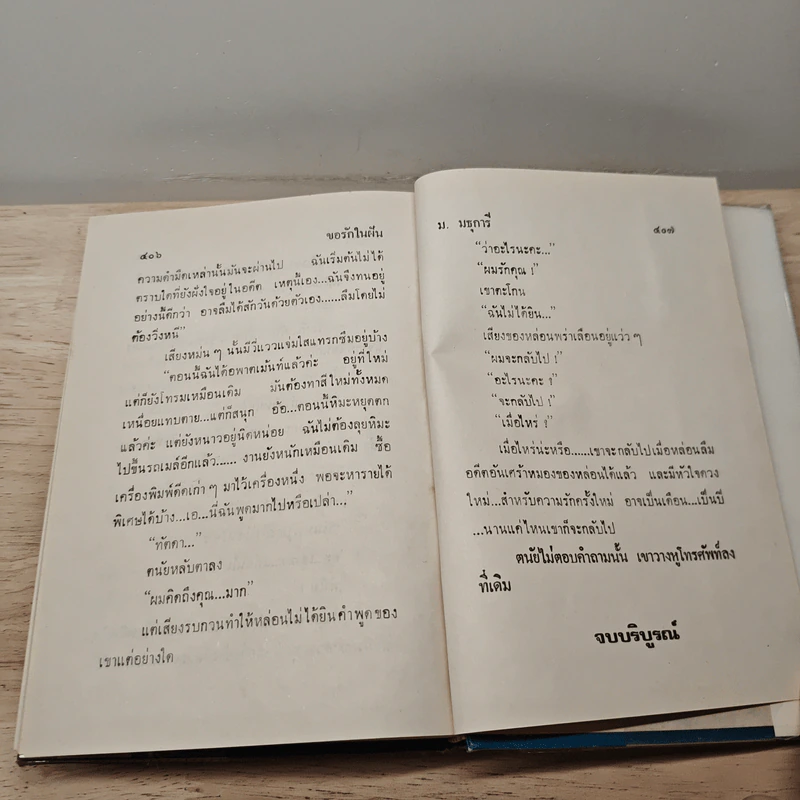 ขอรักในฝัน
๔๐๖
ความดำมืดเหล่านั้นมันจะผ่านไป ฉันเริ่มต้นไม่ได้
ตราบใดที่ยังฝังใจอยู่ในอดีต เหตุนี้เอง...ฉันจึงทนอยู่
อย่างนี้ดีกว่า อาจลืมได้สักวันด้วยตัวเอง......ลืมโดยไม่
ต้องวิ่งหนี”
เสียงหม่น ๆ นั้นมีวี่แววแจ่มใสแทรกซึมอยู่บ้าง
“ตอนนี้ฉันได้อพาตเม้นท์แล้วค่ะ อยู่ที่ใหม่
แต่ก็ยังโทรมเหมือนเดิม มันต้องทาสีใหม่ทั้งหมด
เหนื่อยแทบตาย...แต่ก็สนุก อ้อ...ตอนนี้หิมะหยุดตก
แล้วค่ะ แต่ยังหนาวอยู่นิดหน่อย ฉันไม่ต้องลุยหิมะ
ไปขึ้นรถเมล์อีกแล้ว...... งานยังหนักเหมือนเดิม ซื้อ
เครื่องพิมพ์ดีดเก่า ๆ มาไว้เครื่องหนึ่ง พอจะหารายได้
พิเศษได้บ้าง...เอ...นี่ฉันพูดมากไปหรือเปล่า...”
“ทัตดา...”
ตนัยหลับตาลง
“ผมคิดถึงคุณ...มาก”
แต่เสียงรบกวนทำให้หล่อนไม่ได้ยินคำพูดของ
เขาแต่อย่างใด
ม. มธุการี
๔๐๗
“ว่าอะไรนะคะ...”
“ผมรักคุณ !”
เขาตะโกน
“ฉันไม่ได้ยิน...”
เสียงของหล่อนพร่าเลือนอยู่แว่ว ๆ
“ผมจะกลับไป !”
“อะไรนะคะ ?”
“จะกลับไป !”
“เมื่อไหร่ ?”
เมื่อไหร่น่ะหรือ......เขาจะกลับไปเมื่อหล่อนลืม
อดีตอันเศร้าหมองของหล่อนได้แล้ว และมีหัวใจดวง
ใหม่...สำหรับความรักครั้งใหม่ อาจเป็นเดือน...เป็นปี
...นานแค่ไหนเขาก็จะกลับไป
ตนัยไม่ตอบคำถามนั้น เขาวางหูโทรศัพท์ลง
ที่เดิม
จบบริบูรณ์